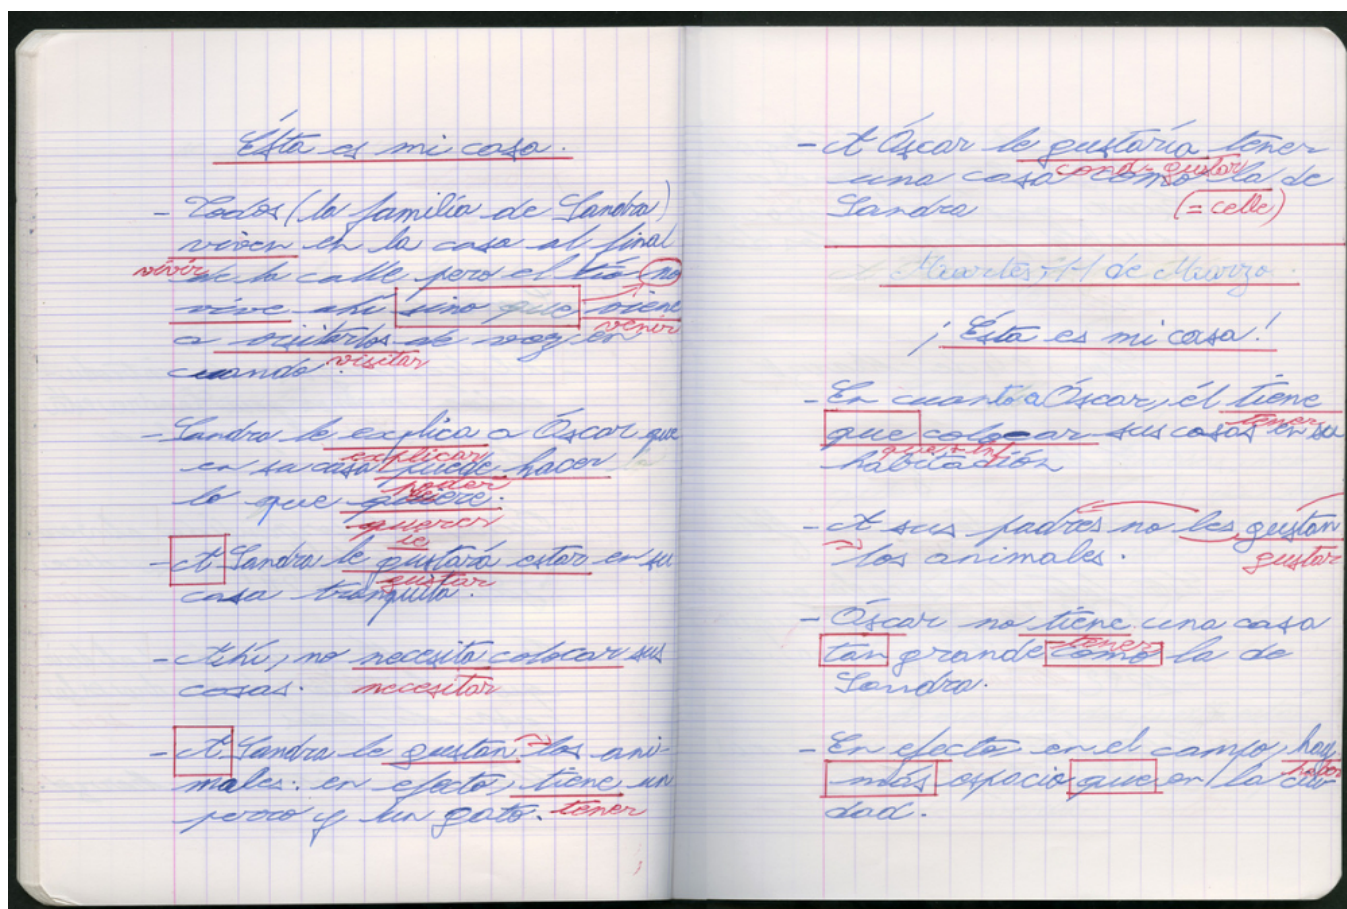 Ésta es mi casa.
- Todos (la familia de Sandra)
viven en la casa al final
vivir
de la calle pero el tío no
vive ahí sino que viene
venir
a visitarlos de vez en
visitar
cuando.
- Sandra le explica a Óscar que
explicar
en su casa puede hacer
poder
lo que quiere.
querer
ie
- A Sandra le gustará estar en su
gustar
casa tranquila.
- Ahí, no necesita colocar sus
cosas. necesitar
- A Sandra le gustan los ani-
males: en efecto, tiene un
perro y un gato. tener
- A Óscar le gustaría tener
cond. gustar
una casa como la de
Sandra (= celle)
Martes, 11 de Marzo.
¡Ésta es mi casa!
- En cuanto a Óscar, él tiene
tener
que colocar sus cosas en su
que + inf
habitación
- A sus padres no les gustan
los animales. gustar
- Óscar no tiene una casa
tener
tan grande como la de
Sandra.
- En efecto en el campo, hay
haber
más espacio que en la ciu
dad.